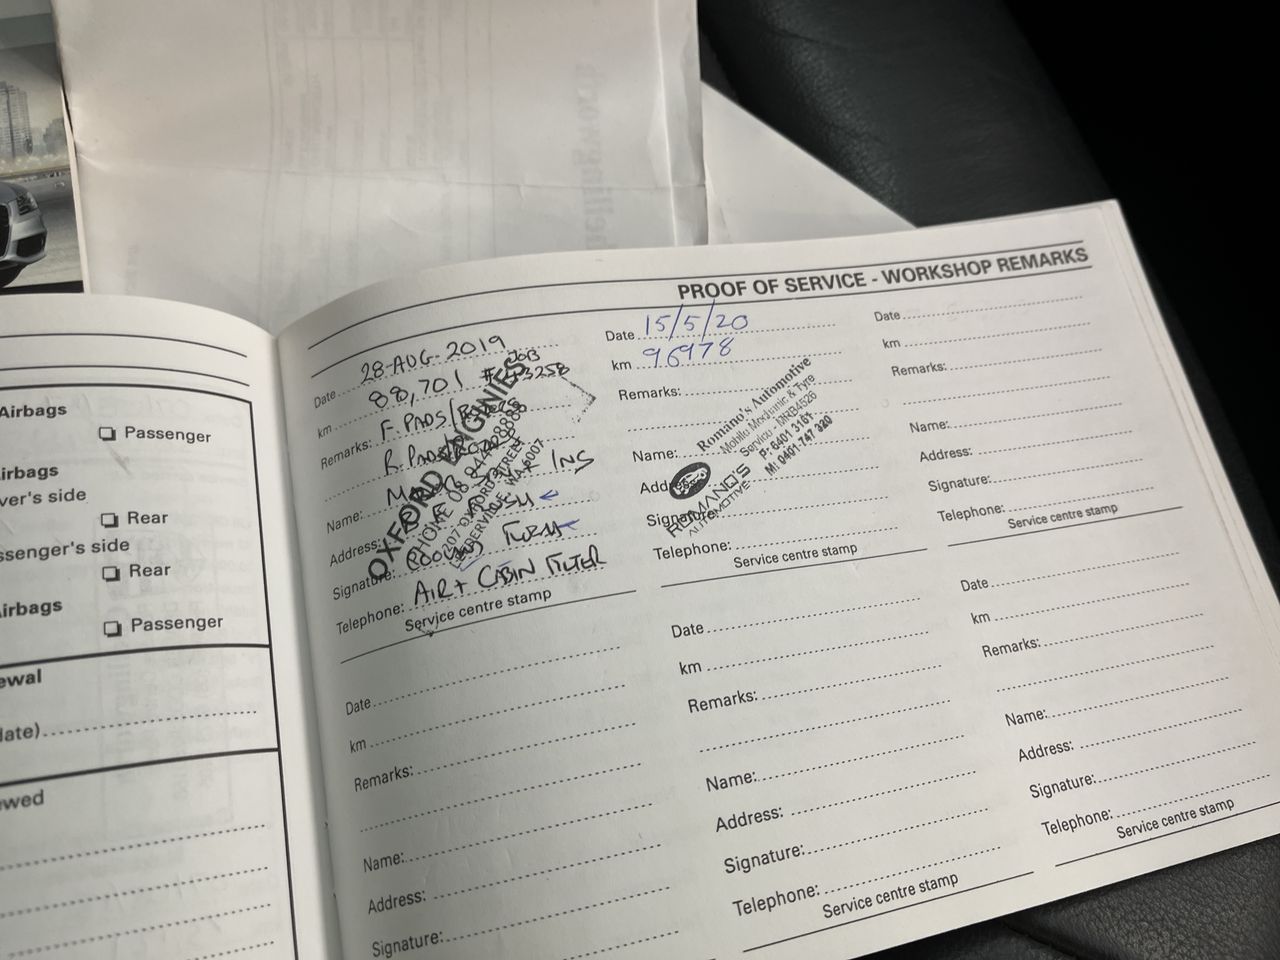 Airbags
Passenger
Airbags
ver's side
Rear
ssenger's side
Rear
Airbags
Passenger
ewal
date)
ewed
PROOF OF SERVICE - WORKSHOP REMARKS
Date 28-AUG-2019
km 88,701 JOB
Remarks: F. PADS/
R.
Name: + INS
Address:
Signature:
Telephone: AIR + CABIN FILTER
Service centre stamp
OXFORD
207 OXFORD STREET
LEEDERVILLE WA 6007
Date 15/5/20
km 96978
Remarks:
Name:
Address:
Signature:
Telephone:
Service centre stamp
Romano's Automotive
Mobile Mechanic & Tyre
P: 6401 3161
M: 0401 747 320
ROMANO'S
AUTOMOTIVE
Date
km
Remarks:
Name:
Address:
Signature:
Telephone:
Service centre stamp
Date
km
Remarks:
Name:
Address:
Signature:
Date
km
Remarks:
Name:
Address:
Signature:
Telephone:
Service centre stamp
Date
km
Remarks:
Name:
Address:
Signature:
Telephone:
Service centre stamp